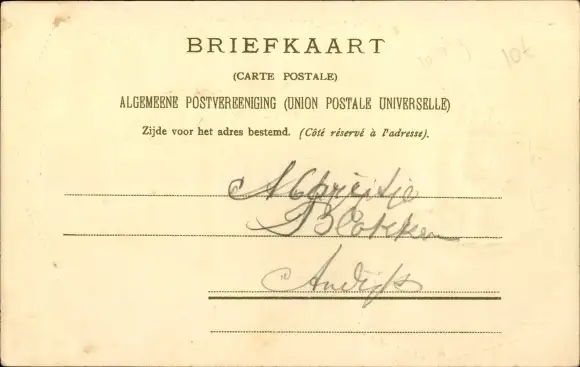 BRIEFKAART
(CARTE POSTALE)
ALGEMEENE POSTVEREENIGING (UNION POSTALE UNIVERSELLE)
Zijde voor het adres bestemd. (Côté réservé à l'adresse).
Blokker
Andijk